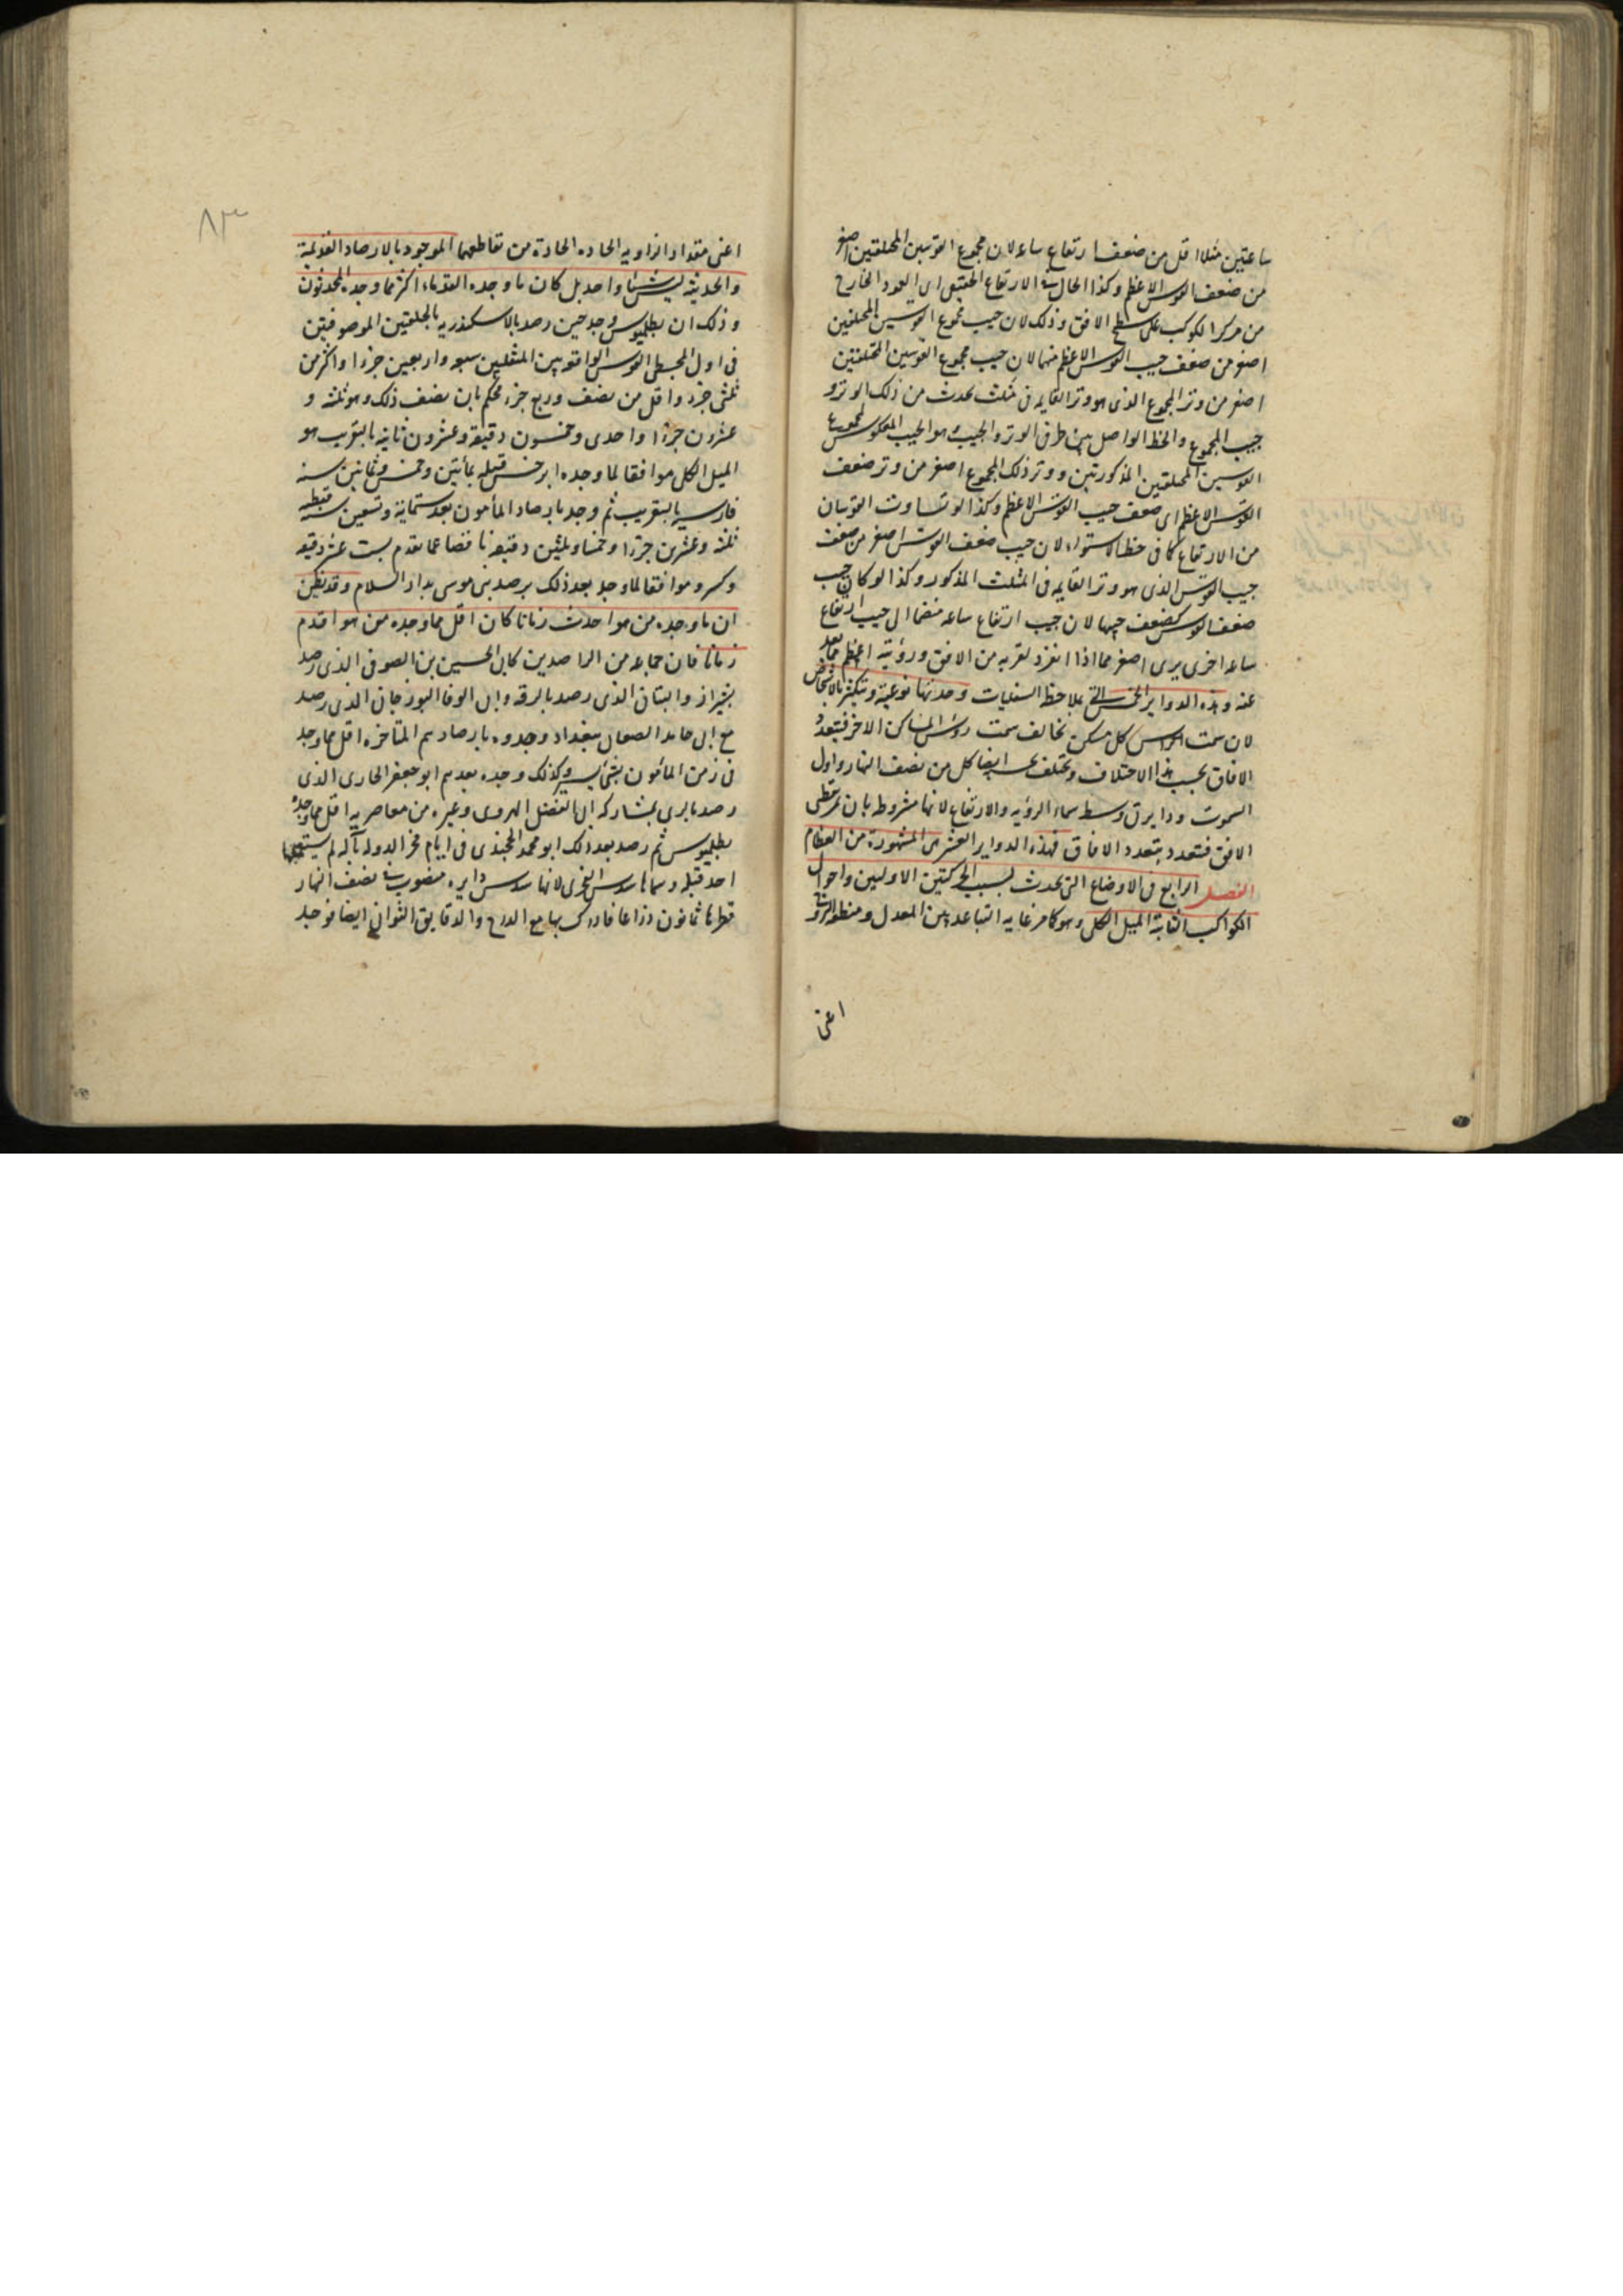 ساعتين مثلا اقل من ضعف ارتفاع ساعه لان مجموع القوسين المختلفتين اصغر
من ضعف القوس الاعظم وكذا الحال في الارتفاع الحقيقي اى العمود الخارج
من مركز الكوكب على سطح الافق وذلك لان جيب مجموع القوسين المختلفتين
اصغر من ضعف جيب القوس الاعظم منهما لان جيب مجموع القوسين المختلفتين
اصغر من وتر المجموع الذى هو وتر القايمه فى مثلث يحدث من ذلك الوتر و
جيب المجموع والخط الواصل بين طرفى الوتر والجيب وهو الجيب المعكوس لمجموع
القوسين المختلفتين المذكورتين ووتر ذلك المجموع اصغر من وتر ضعف
القوس الاعظم اى ضعف جيب القوس الاعظم وكذا لو تساوت القوسان
من الارتفاع كما فى خط الاستواء لان جيب ضعف القوس اصغر من ضعف
جيب القوس الذى هو وتر القايمه فى المثلث المذكور وكذا لو كان جيب
ضعف القوس كضعف جيبها لان جيب ارتفاع ساعه منضما الى جيب ارتفاع
ساعه اخرى يرى اصغر مما اذا انفرد لقربه من الافق ورؤيته اعظم مما بعد
عنه وهذه الدواير الخمس التى بملاحظ السفليات وحدتها نوعية وتتكثر بالاشخاص
لان سمت الراس كل مسكن يخالف سمت رؤس المساكن الاخر فيتعدد
الافاق بحسب هذا الاختلاف ويختلف بحسبه ايضا كل من نصف النهار واول
السموت ودايرتى وسط سماء الرؤيه والارتفاع لانها مشروطه بان تمر بقطبى
الافق فتتعدد بتعدد الافاق فهذه الدواير العشر هى المشهورة من العظام
الفصل الرابع فى الاوضاع التى تحدث بسبب الحركتين الاوليين واحوال
الكواكب الثابتة الميل الكلى وهو كما مر غايه التباعد بين المعدل ومنطقه البروج
اعنى
٨٣
اعنى مقدار الزاويه الحاده الحادثة من تقاطعهما الموجود بالارصاد القديمة
والحديثه ليس شيئا واحدا بل كان ما وجده القدماء اكثر مما وجده المحدثون
وذلك ان بطلميوس وجد حين رصد بالاسكندريه بالحلقتين الموصوفتين
فى اول المجسطى القوس الواقعه بين المنقلبين سبعه واربعين جزءا واكثر من
ثلثى جزء واقل من نصف وربع جزء فحكم بان نصف ذلك وهو ثلثة و
عشرون جزءا واحدى وخمسون دقيقه وعشرون ثانيه بالتقريب هو
الميل الكلى موافقا لما وجده ابرخس قبله بمأتين وخمس وثمانين سنه
فارسيه بالتقريب ثم وجد بارصاد المأمون بعد ستمائة وتسعين سنه قبطيه
ثلثة وعشرين جزءا وخمسا وثلثين دقيقه ناقصا عما تقدم بست عشر دقيقه
وكسر وموافقا لما وجد بعد ذلك برصد بنى موسى بدار السلام وقد يظن
ان ما وجده من هو احدث زمانا كان اقل مما وجده من هو اقدم
زمانا فان جماعه من الراصدين كابى الحسين بن الصوفى الذى رصد
بشيراز والبتانى الذى رصد بالرقه وابى الوفا البوزجانى الذى رصد
مع ابى حامد الصغانى ببغداد وجدوه بارصادهم المتاخره اقل مما وجد
فى زمن المأمون بشئ يسير وكذلك وجده بعدهم ابو جعفر الخازن الذى
رصد بالرى بمشاركه ابى الفضل الهروى وغيره من معاصريه اقل مما وجده
بطلميوس ثم رصد بعد ذلك ابو محمد الخجندى فى ايام فخر الدوله بآله لم يستعملها
احد قبله وسماها سدس الفخرى لانها سدس دايره منصوب فى نصف النهار
قطرها ثمانون ذراعا فادرك بها مع الدرج والدقايق الثوانى ايضا فوجد